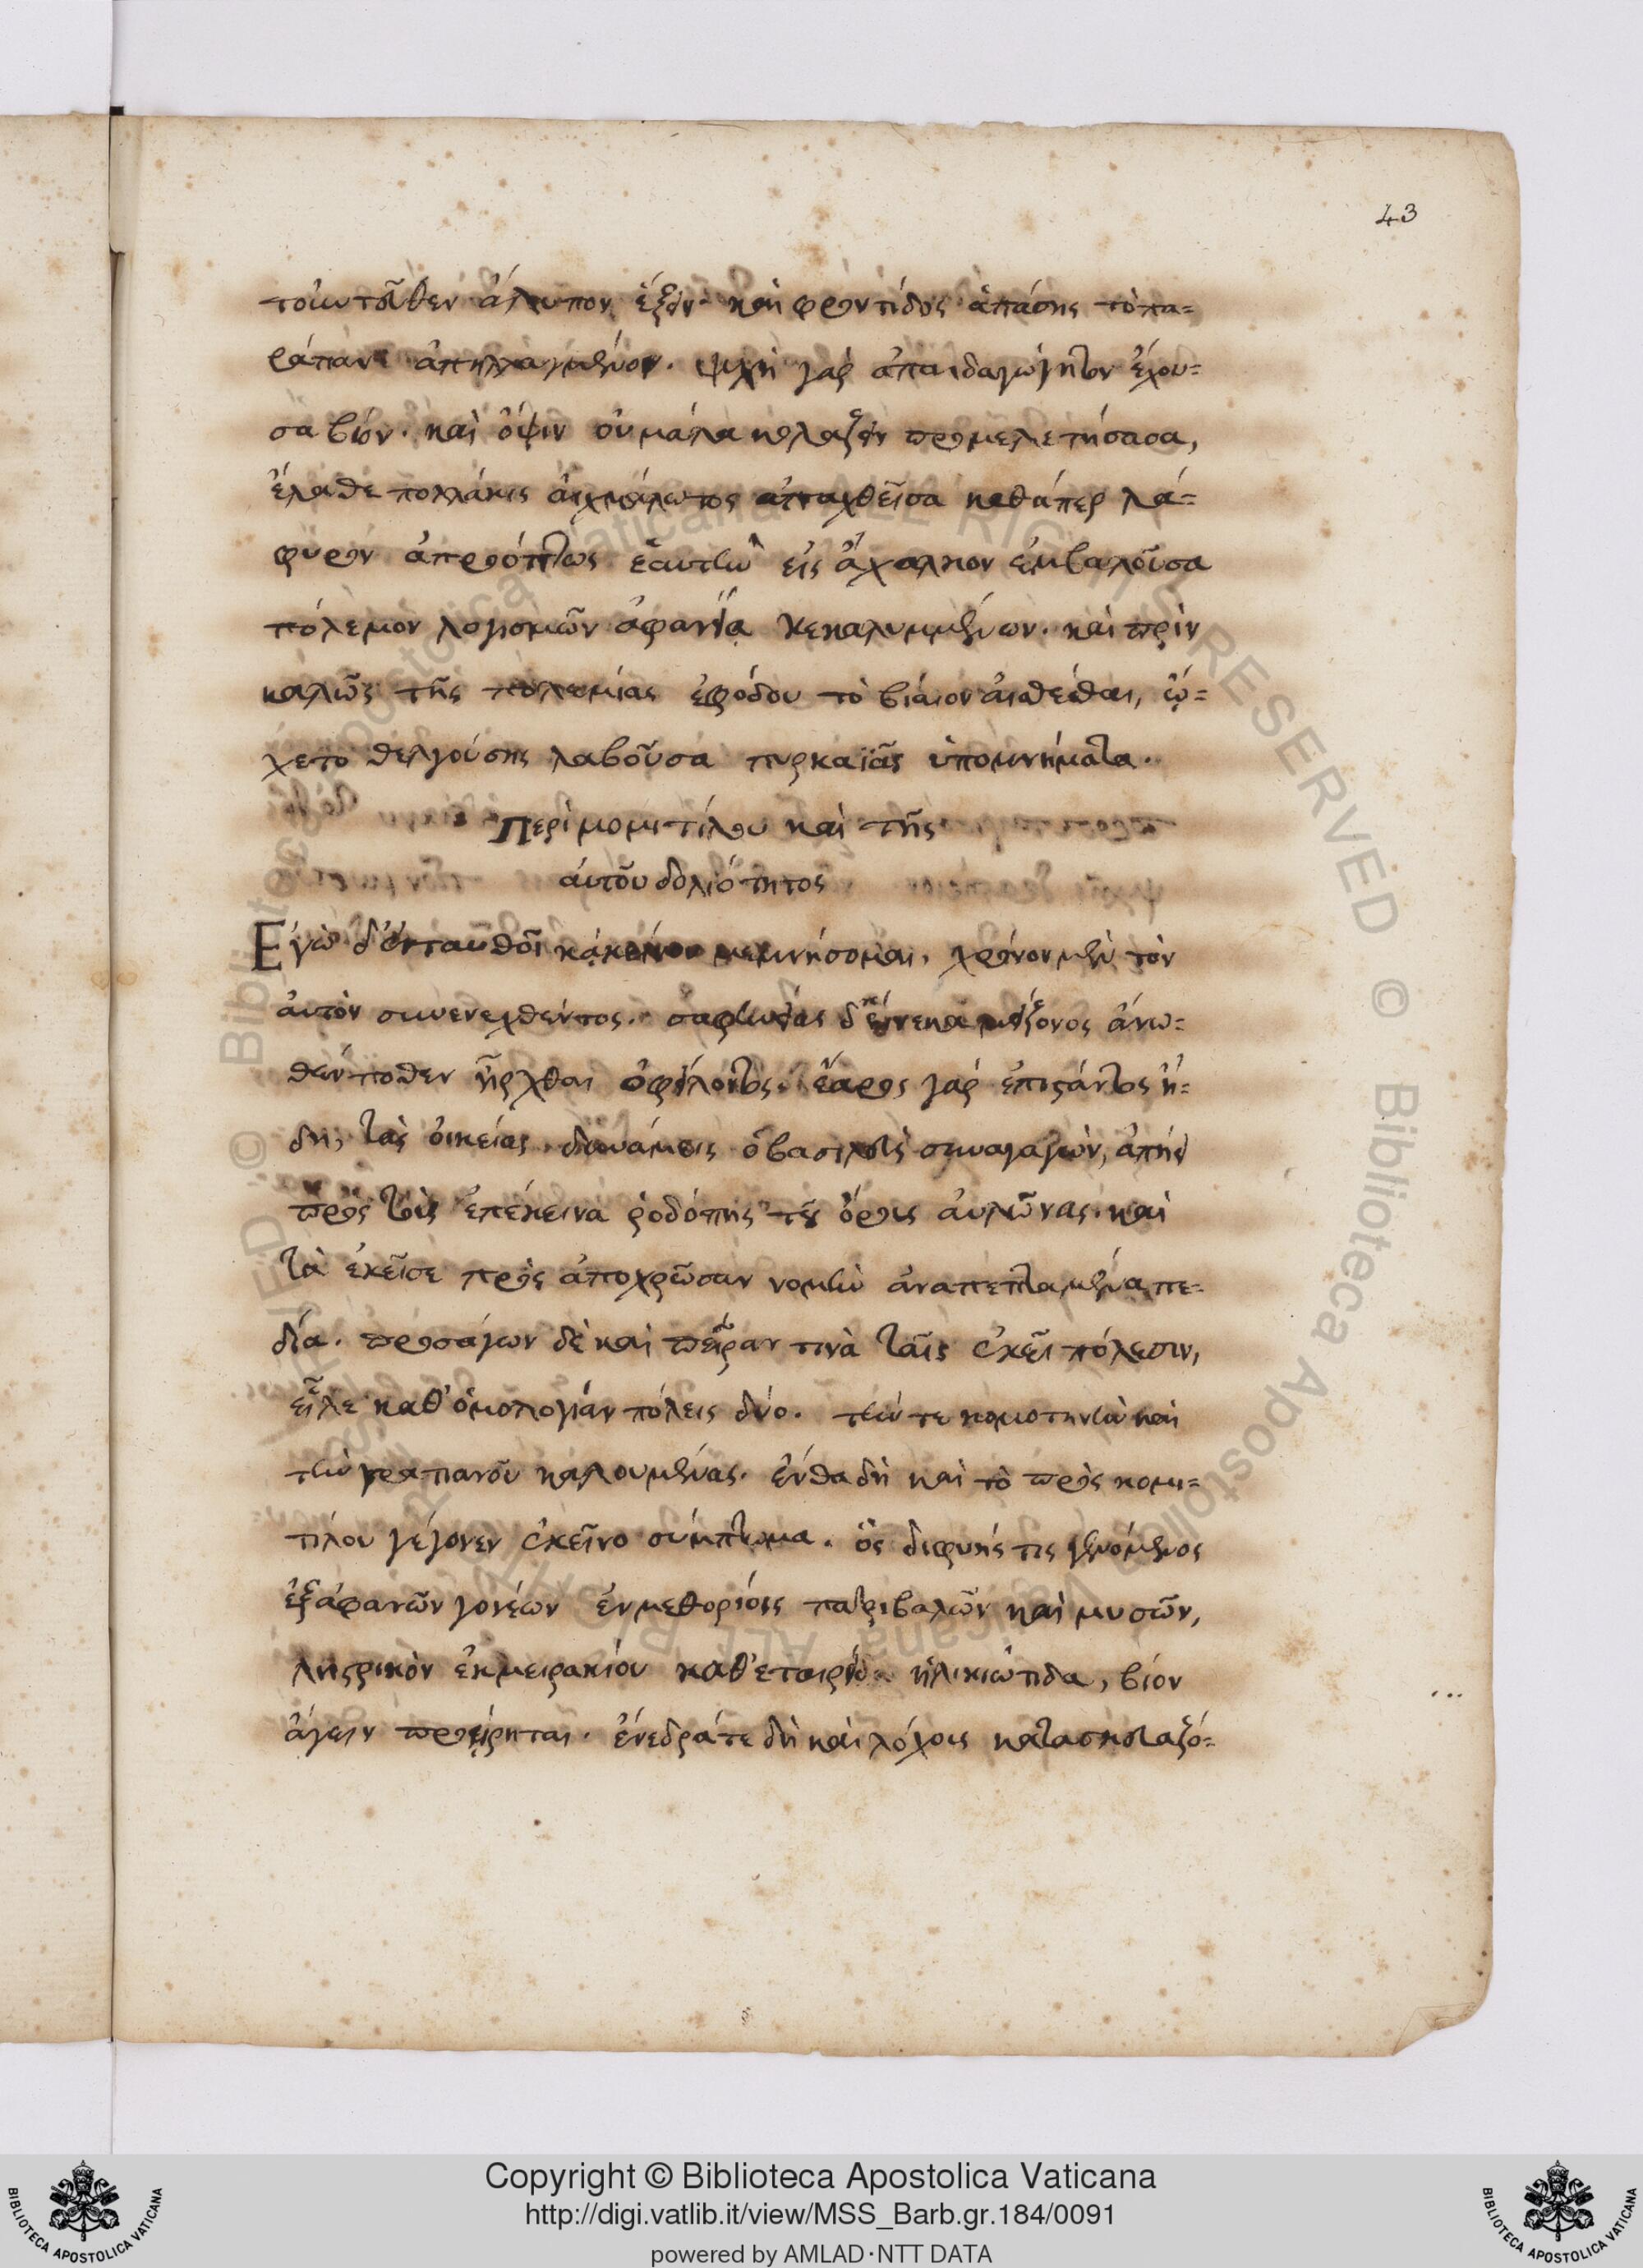 43
τοὐντεῦθεν ἄλυπον ἕξειν· καὶ φροντίδος ἁπάσης τὸ πα=
ράπαν ἀπηλλαγμένον. ψυχὴ γὰρ ἀπαιδαγώγητον ἔχου=
σα βίον· καὶ ὄψιν οὐ μάλα κολάζειν προμελετήσασα,
ἔλαθε πολλάκις αἰχμάλωτος ἀπαχθεῖσα καθάπερ λά=
φυρον ἀπροόπτως ἑαυτὴν εἰς ἄχαλκον ἐμβαλοῦσα
πόλεμον λογισμῶν ἀφανεία κεκαλυμμένων. καὶ πρὶν
καλῶς τῆς πολεμίας ἐφόδου τὸ βίαιον αἰσθέσθαι, ᾤ=
χετο θελγούσης λαβοῦσα πυρκαϊᾶς ὑπομνήματα.
Περὶ μομιτίλου καὶ τῆς
αὐτοῦ δολιότητος
Ἐγὼ δ' ἐνταυθοῖ κἀκείνου μεμνήσομαι, χρόνον μὲν τὸν
αὐτὸν συνενεχθέντος· σαφηνείας δ' εἵνεκα μείζονος ἄνω=
θέν ποθεν ἦρχθαι ὀφείλοντος. ἔαρος γὰρ ἐπιστάντος ἤ=
δη, τὰς οἰκείας δυνάμεις ὁ βασιλεὺς συναγαγὼν, ἀπῄει
πρὸς τοὺς ἐπέκεινα ῥοδόπης τοῦ ὄρους αὐλῶνας· καὶ
τὰ ἐκεῖσε πρὸς ἀποχρῶσαν νομὴν ἀναπεπταμένα πε=
δία. προσάγων δὲ καὶ πεῖράν τινὰ ταῖς ἐκεῖ πόλεσιν,
εἷλε καθ' ὁμολογίαν πόλεις δύο. τήν τε κομοτηνὴν καὶ
τὴν γρατιανοῦ καλουμένας. ἔνθα δὴ καὶ τὸ πρὸς κομι=
τίλου γέγονεν ἐκεῖνο σύμπτωμα. ὃς διφυής τις γενόμενος
ἐξ ἀφανῶν γονέων ἐν μεθορίοις τριβαλῶν καὶ μυσῶν,
λῃστρικὸν ἐκ μειρακίου καθ' ἑταιρείαν ἡλικιώτιδα, βίον
ἄγειν προῄρηται. ἐνέδρα τε δὴ καὶ λόχοις κατασκευαζό=